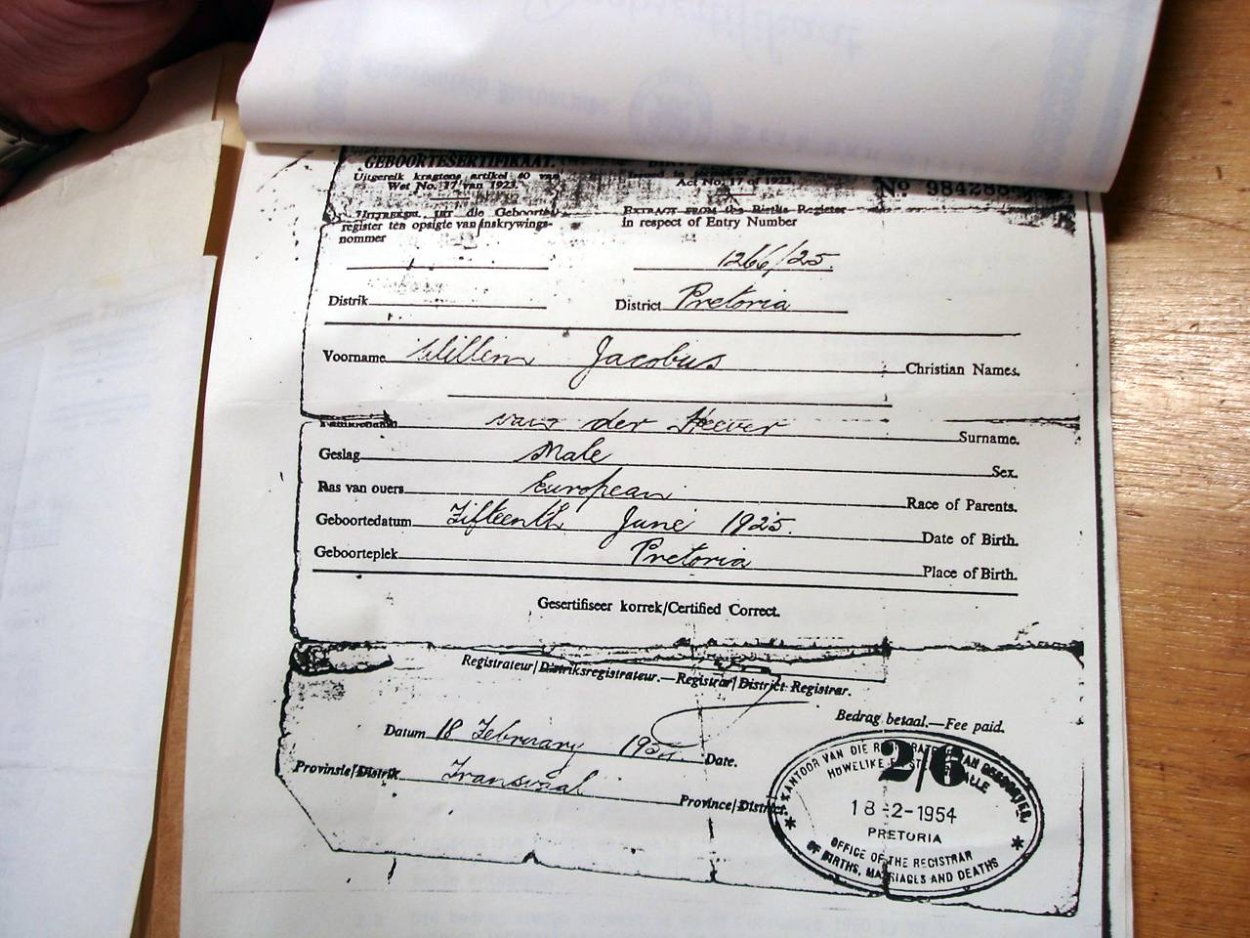 GEBOORTESERTIFIKAAT.
Uitgereik kragtens artikel 40 van
Wet No. 17 van 1923.
Act No. 17 of 1923.
No 984288
UITTREKSEL UIT die Geboorte-
register ten opsigte van inskrywings-
nommer
EXTRACT FROM the Births Register
in respect of Entry Number
1266/25.
Distrik
District Pretoria
Voorname Willem Jacobus Christian Names.
van der Heever Surname.
Geslag Male Sex.
Ras van ouers European Race of Parents.
Geboortedatum Fifteenth June 1925. Date of Birth.
Geboorteplek Pretoria Place of Birth.
Gesertifiseer korrek/Certified Correct.
Registrateur/Distriksregistrateur.—Registrar/District Registrar.
Bedrag betaal.—Fee paid.
2/6
Datum 18 February Date.
Provinsie/Distrik Transvaal Province/District.
KANTOOR VAN DIE VAN GEBOORTES,
HUWELIKE
18-2-1954
PRETORIA
OFFICE OF THE REGISTRAR
OF BIRTHS, MARRIAGES AND DEATHS